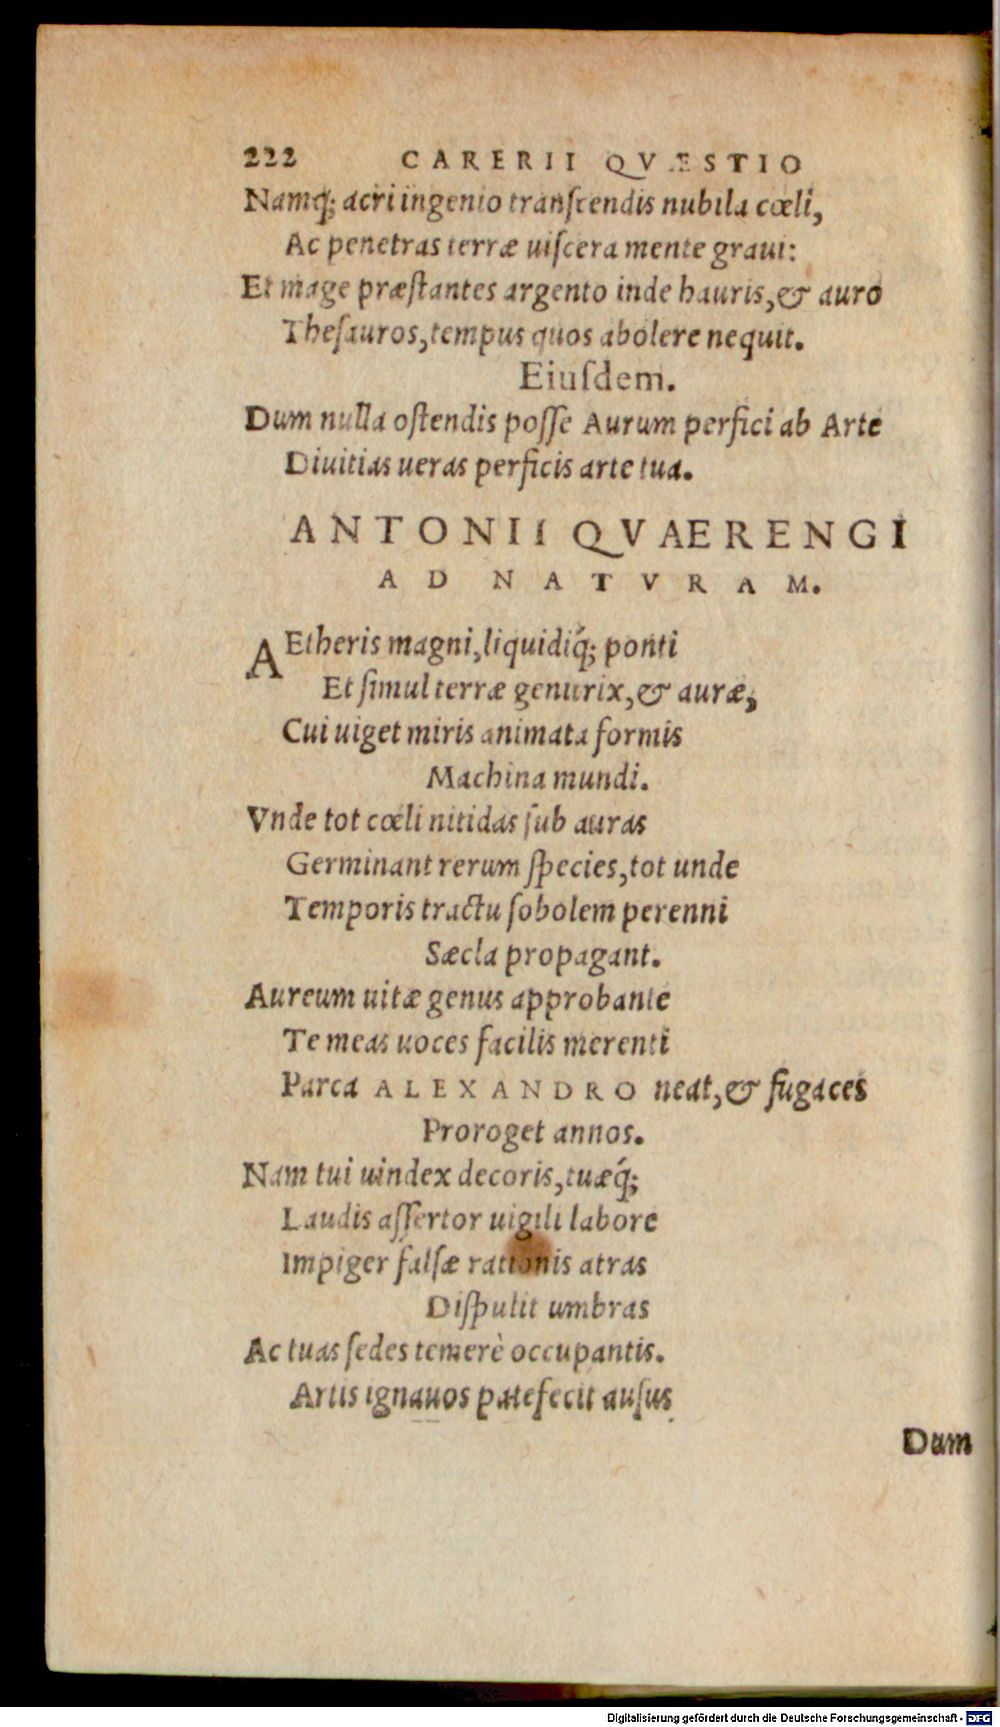 222 CARERII QVÆSTIO
Namq́; acri ingenio tranſcendis nubila cœli,
Ac penetras terræ uiſcera mente graui:
Et mage præſtantes argento inde hauris, & auro
Theſauros, tempus quos abolere nequit.
Eiuſdem.
Dum nulla oſtendis poſſe Aurum perfici ab Arte
Diuitias ueras perficis arte tua.
ANTONII QVAERENGI
AD NATVRAM.
AEtheris magni, liquidiq́; ponti
Et ſimul terræ genitrix, & auræ,
Cui uiget miris animata formis
Machina mundi.
Vnde tot cœli nitidas ſub auras
Germinant rerum ſpecies, tot unde
Temporis tractu ſobolem perenni
Sæcla propagant.
Aureum uitæ genus approbante
Te meas uoces facilis merenti
Parca ALEXANDRO neat, & fugaces
Proroget annos.
Nam tui uindex decoris, tuæq́;
Laudis aſſertor uigili labore
Impiger falſæ rationis atras
Diſpulit umbras
Ac tuas ſedes temerè occupantis.
Artis ignauos patefecit auſus
Dum
Digitalisierung gefördert durch die Deutsche Forschungsgemeinschaft - DFG